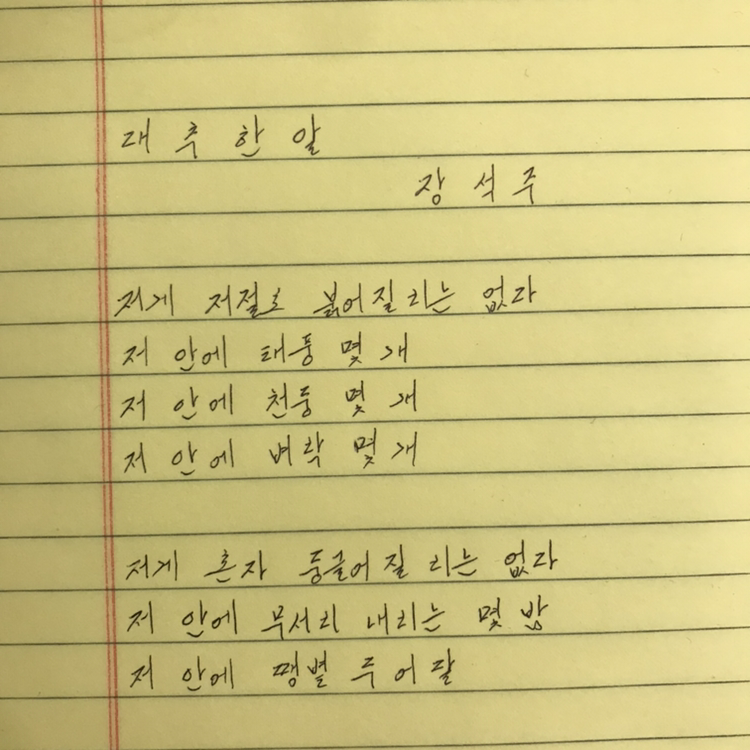 대추 한 알
장석주
저게 저절로 붉어질 리는 없다
저 안에 태풍 몇 개
저 안에 천둥 몇 개
저 안에 벼락 몇 개
저게 혼자 둥글어질 리는 없다
저 안에 무서리 내리는 몇 밤
저 안에 땡볕 두어 달